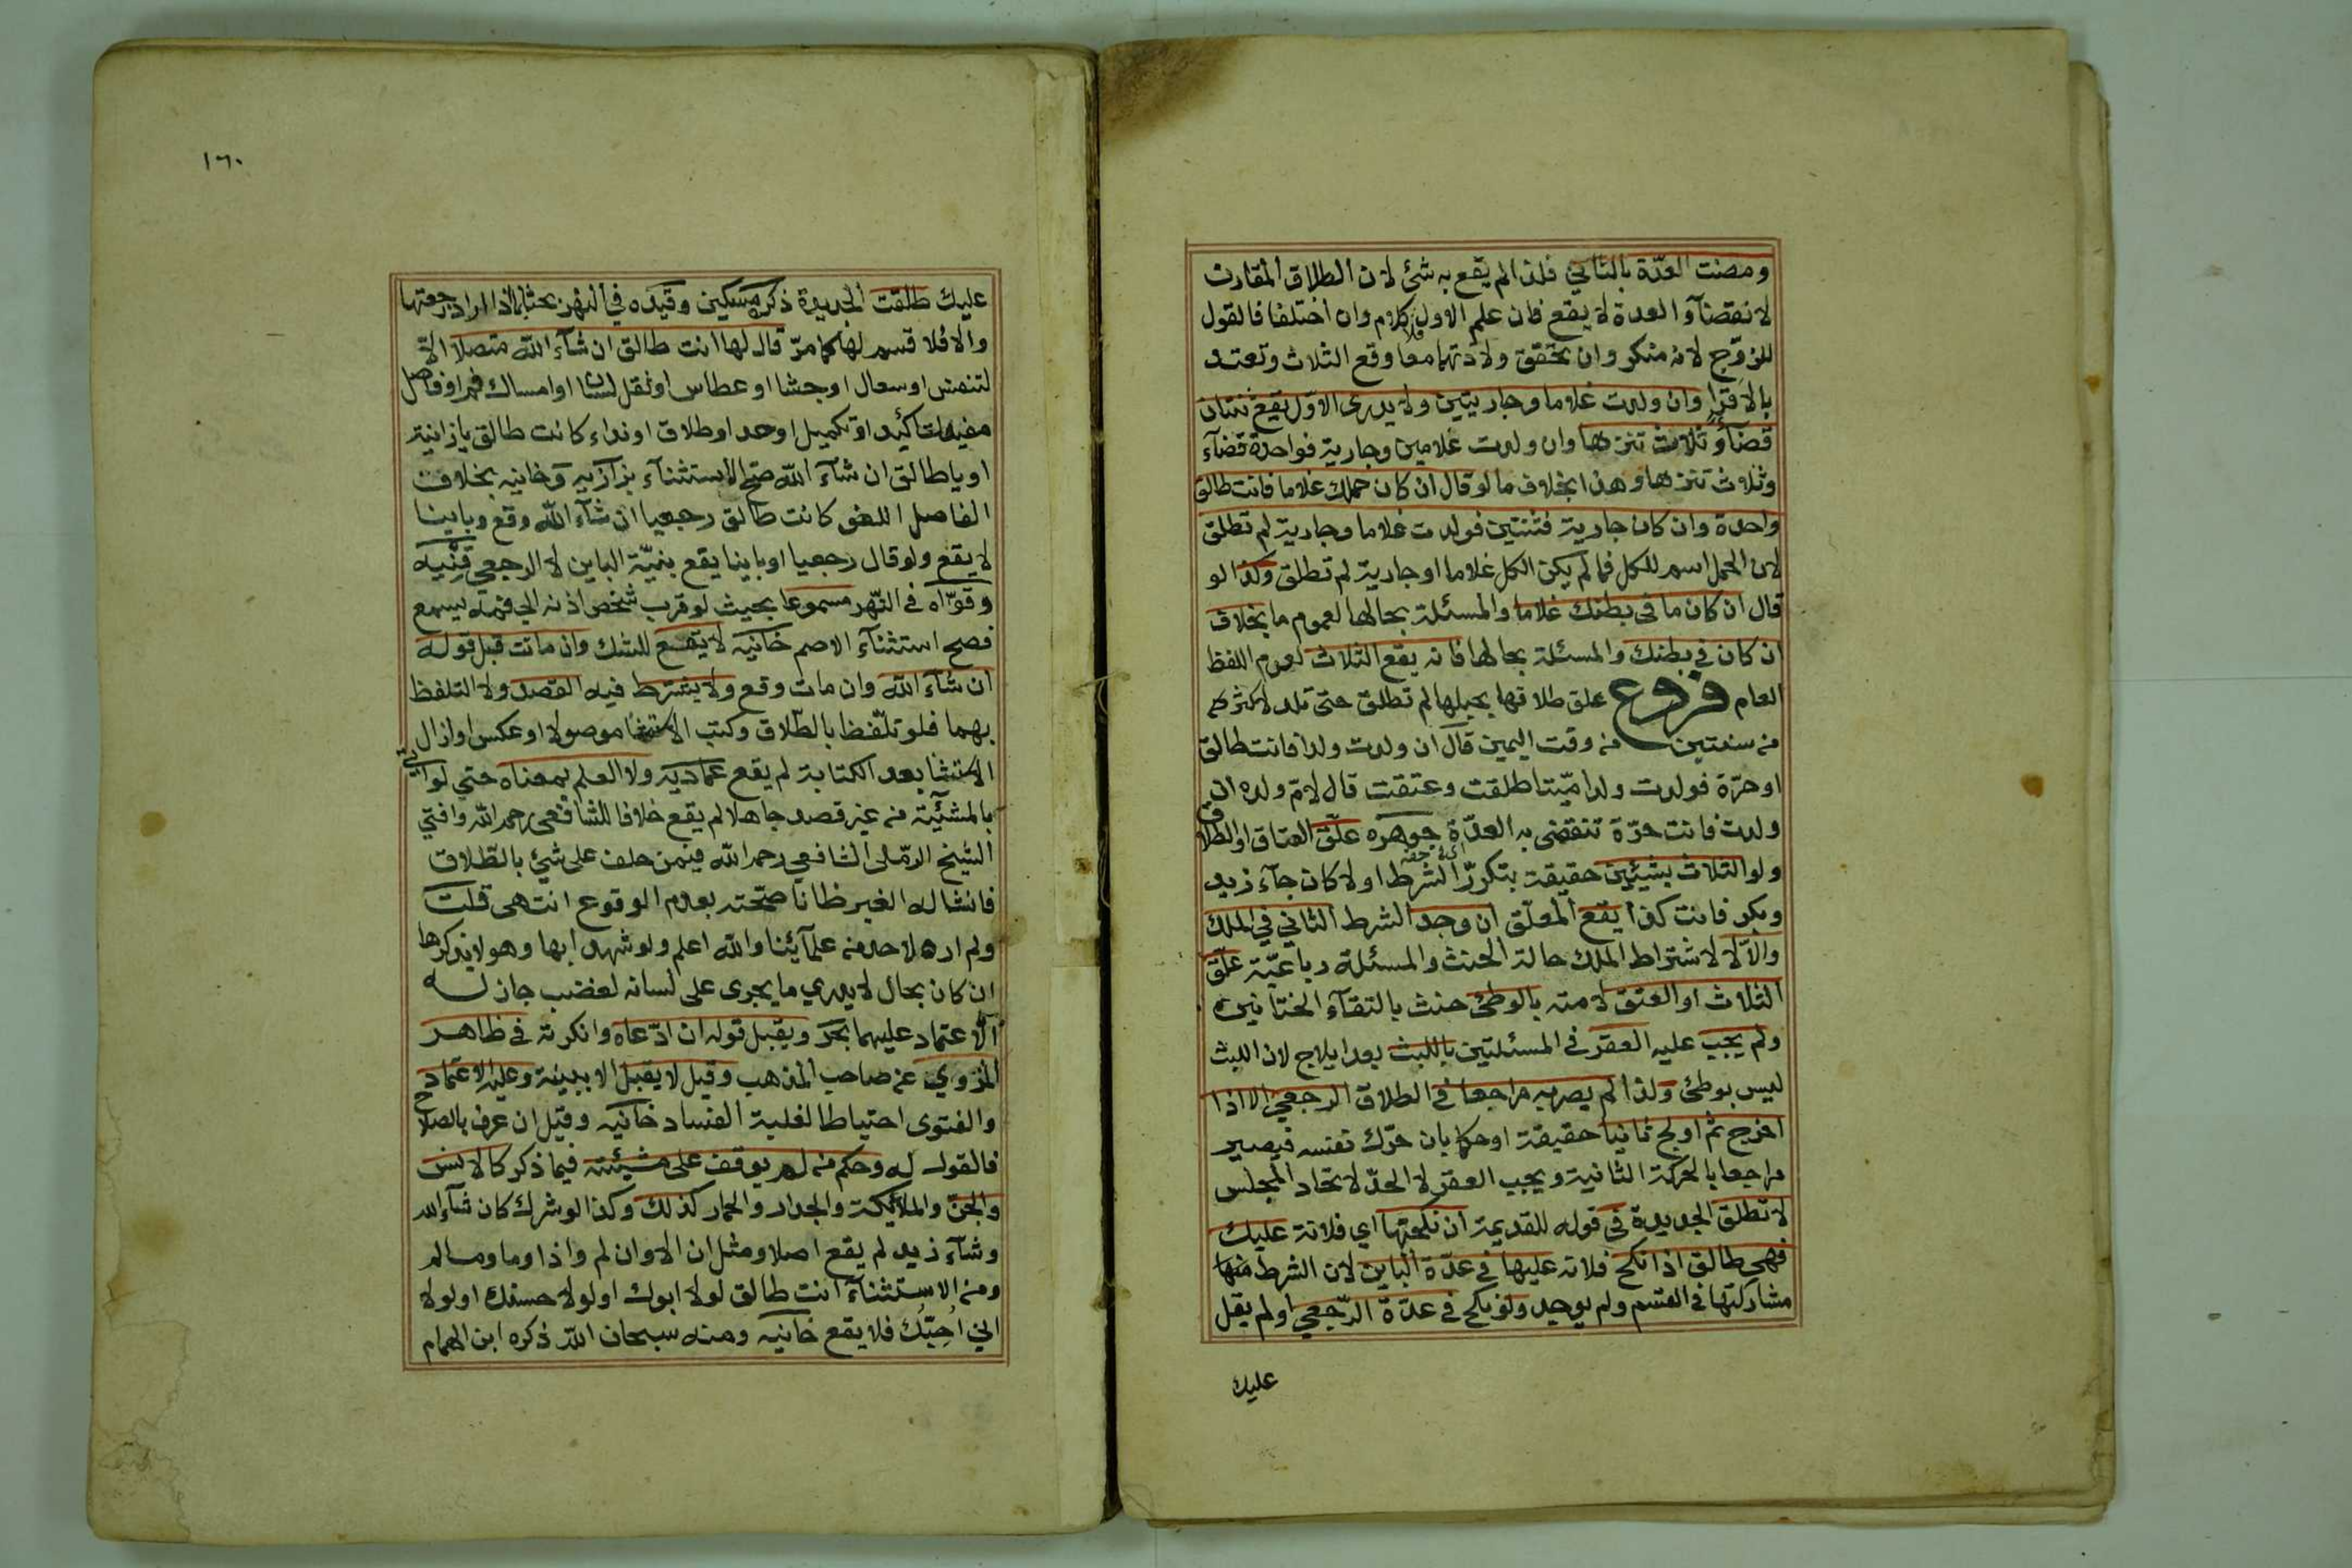 ومضت العدّة بالثاني فلذا لم يقع به شئ لان الطلاق المقارن
لانقضآء العدة لا يقع فان علم الاول فلا كلام وان اختلفا فالقول
للزوج لانه منكر وان تحقق ولادتهما معا وقع الثلاث وتعتد
بالاقرا وان ولدت غلاما وجاريتين ولا يدرى الاوّل يقع ثنتان
قضآء وثلاث تنزها وان ولدت غلامين وجارية فواحدة قضآء
وثلاث تنزها وهذا بخلاف ما لو قال ان كان حملك غلاما فانت طالق
واحدة وان كان جارية فثنتين فولدت غلاما وجارية لم تطلق
لان الحمل اسم للكل فما لم يكن الكل غلاما او جارية لم تطلق وكذا لو
قال ان كان ما فى بطنك غلاما والمسئلة بحالها لعموم ما بخلاف
ان كان في بطنك والمسئلة بحالها فانه يقع الثلاث لعدم اللفظ
العام فروع علق طلاقها بحبلها لم تطلق حتى تلد لاكثر
من سنتين من وقت اليمين قال ان ولدت ولدا فانت طالق
او حرّة فولدت ولدا ميّتا طلقت وعتقت قال لامّ ولده ان
ولدت فانت حرّة تنقضى به العدّة جوهره علّق العتاق او الطلاق
ولو الثلاث بشيئين حقيقة بتكرّر الشرط او لا كان جآء زيد
وبكر فانت كذا يقع المعلّق ان وجد الشرط الثاني في الملك
والّا لا لاشتراط الملك حالة الحنث والمسئلة رباعيّة علّق
الثلاث او العتق لامته بالوطئ حنث بالتقآء الختانين
ولم يجب عليه العقر فى المسئلتين باللبث بعد ايلاج لان اللبث
ليس بوطئ ولذا لم يصر به مراجعا في الطلاق الرجعي الا اذا
اخرج ثم اولج ثانيا حقيقة او حكما بان حرّك نفسه فيصير
مراجعا بالحركة الثانية ويجب العقر لا الحدّ لاتحاد المجلس
لا تطلق الجديدة في قوله للقديمة ان نكحتها اي فلانة عليك
فهى طالق اذا نكح فلانه عليها في عدّة البائن لان الشرط
مشاركتها فى القسم ولم يوجد ولو نكح فى عدّة الرّجعي او لم يقل
عليك
١٦٠
عليك طلقت الجديدة ذكره مسكين وقيده في النهر بحثا بما اذا اراد رجعتها
والا فلا قسم لها كما مرّ قال لها انت طالق ان شآء الله متصلا الّا
لتنفس او سعال او جشا او عطاس او ثقل لسان او امساك فم او فاصل
مفيد لتأكيد او تكميل او حد او طلاق او نداء كانت طالق يا زانية
او يا طالق ان شآء الله صح الاستثنآء بزازيه وخانيه بخلاف
الفاصل اللغو كانت طالق رجعيا ان شآء الله وقع وباينا
لا يقع ولو قال رجعيا او باينا يقع بنيّة الباين لا الرجعي قنيه
وقوّاه فى النّهر مسموعا بحيث لو قرب شخص اذنه الى فمه يسمع
فصح استثنآء الاصم خانيه لا يقع للشك وان ماتت قبل قوله
ان شآء الله وان مات وقع ولا يشترط فيه القصد ولا التلفظ
بهما فلو تلّفظ بالطّلاق وكتب الاستثنا موصولا او عكس او ازال
الاستثنا بعد الكتابة لم يقع عماديه ولا العلم بمعناه حتي لو اتى
بالمشيّئة من غير قصد جاهلا لم يقع خلافا للشافعى رحمه الله وافتي
الشيخ الرّملى الشافعي رحمه الله فيمن حلف على شئ بالطّلاق
فانشا له الغير ظانا صحّته بعدم الوقوع انتهى قلت
ولم اره لاحد من علمآئنا والله اعلم ولو شهد ابها وهو لا يذكرها
ان كان بحال لا يدري ما يجرى على لسانه لغضب جاز له
الاعتماد عليهما بحر ويقبل قوله ان ادّعاه وانكرته فى ظاهر
المروي عن صاحب المذهب وقيل لا يقبل الا ببينة وعليه الاعتماد
والفتوى احتياطا لغلبة الفساد خانيه وقيل ان عرف بالصلاح
فالقول له وحكم من لم يوقف على مشيئته فيما ذكر كالانس
والجنّ والملائكة والجدار والحمار كذلك وكذا لو شرك كان شآء الله
وشآء زيد لم يقع اصلا ومثل ان الا وان لم واذا وما وما لم
ومن الاستثنآء انت طالق لولا ابوك او لولا حسنك او لولا
اني اُحبّك فلا يقع خانيه ومنه سبحان الله ذكره ابن الهمام